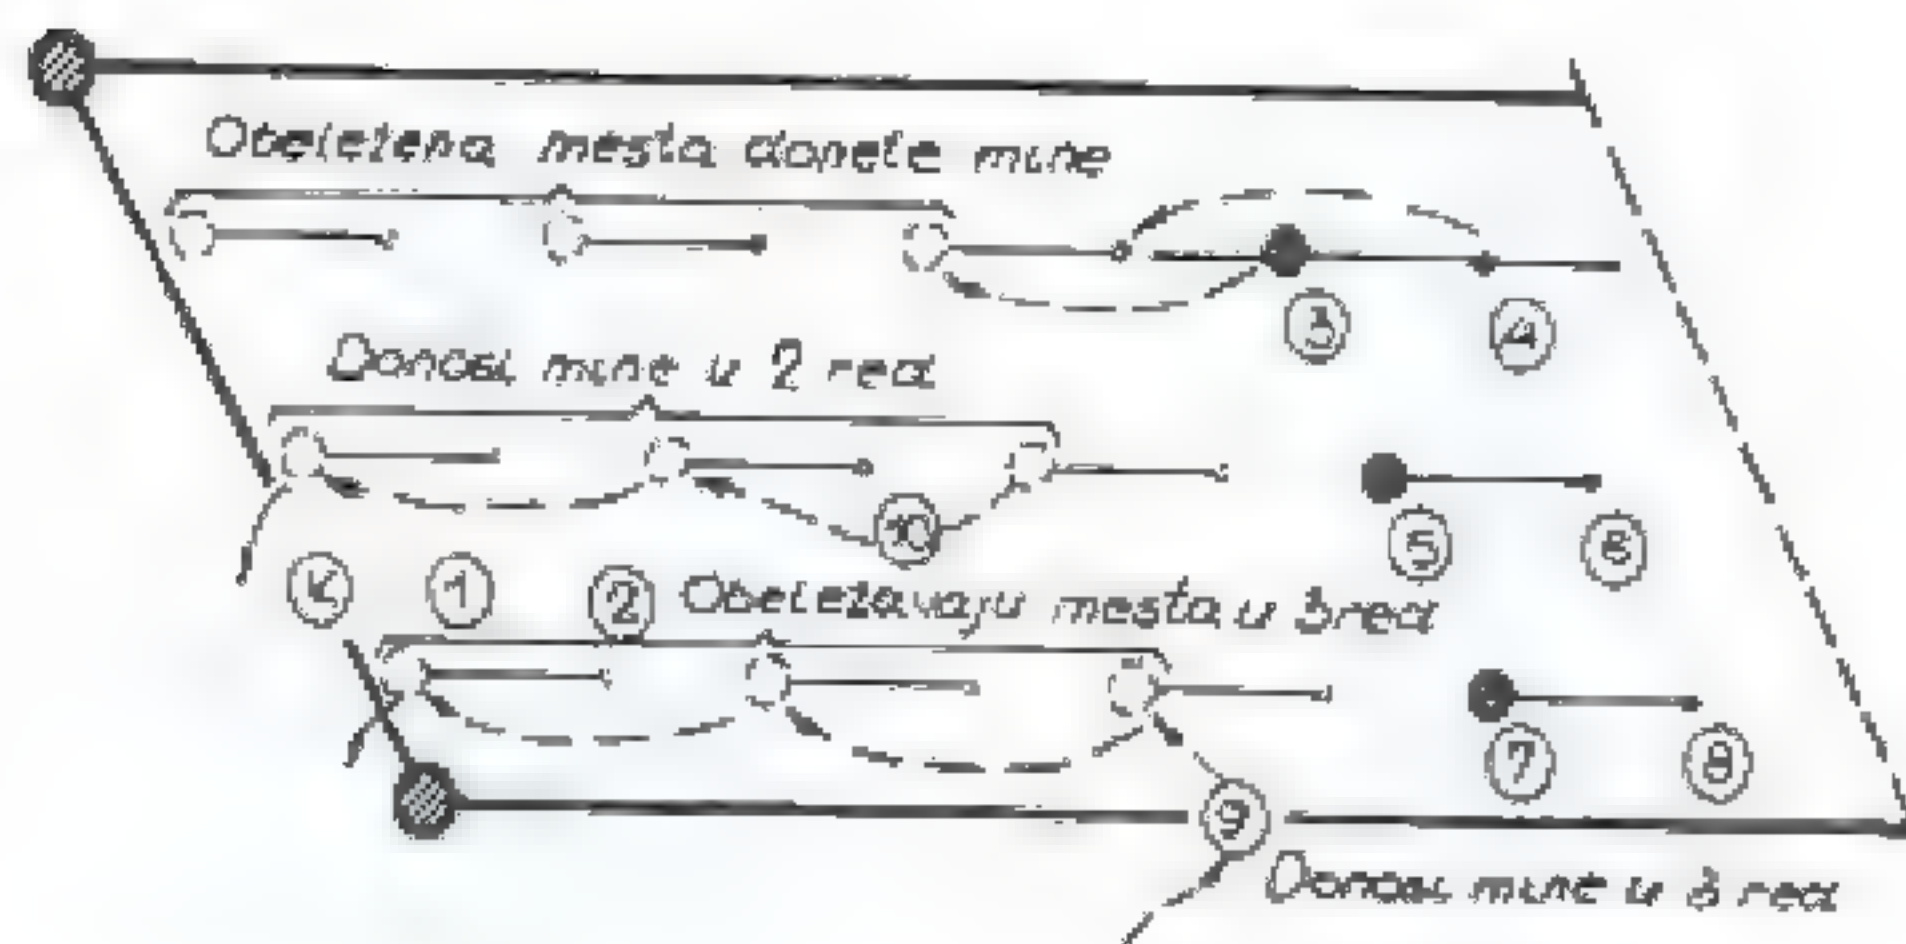 Obeležena mesta donete mine
3 4
Donosi mine u 2 red
10 5 6
K 1 2 Obeležavaju mesta u 3 red
7 8
9
Donosi mine u 3 red